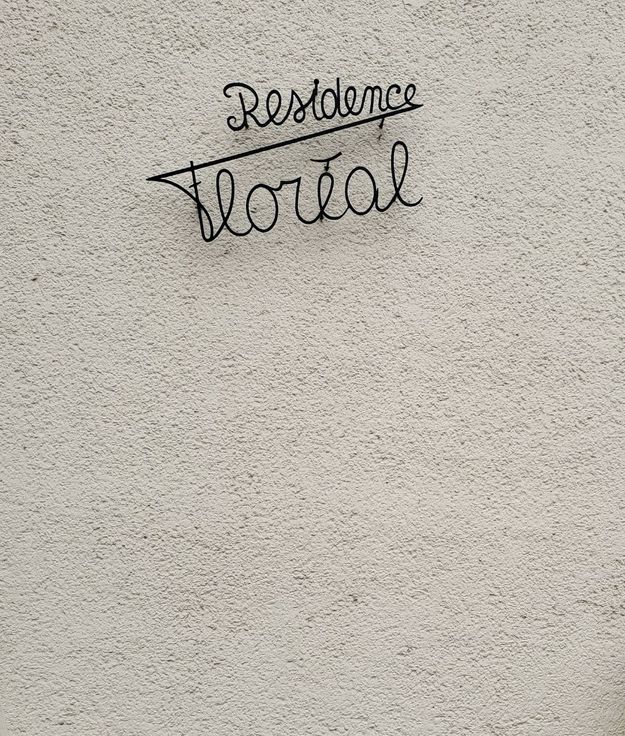 Residence
Floréal